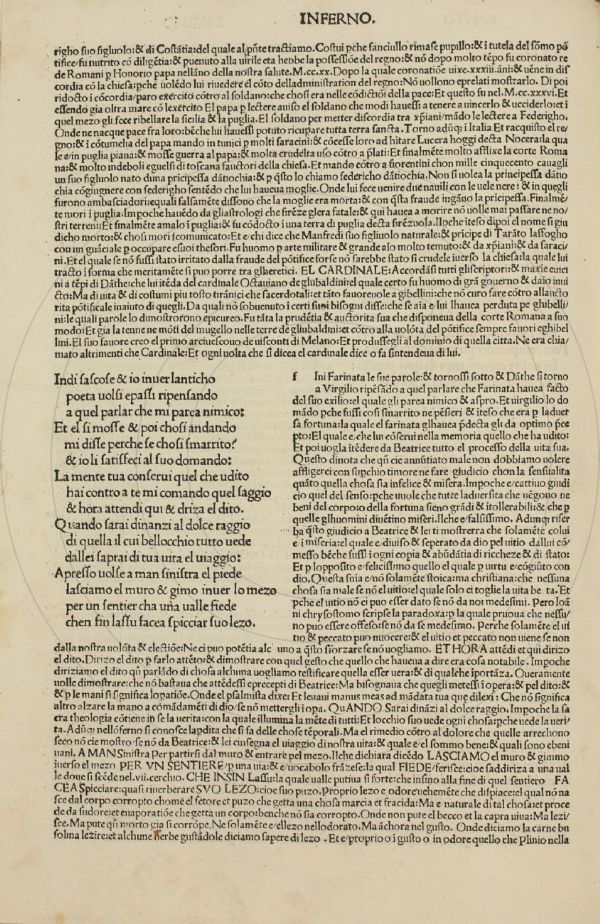 INFERNO.
righo suo figluolo: & di Costãtia: del quale al p̃nte tractiamo. Costui p che fanciullo rimase pupillo: & ĩ tutela del sõmo põ
tifice fu nutrito cõ diligẽtia: & puenuto alla virile eta hebbe la possessiõe del regno: & nõ dopo molto tẽpo fu coronato re
de Romani p Honorio papa nellãno della nostra salute. M.cc.xx. Dopo la quale coronatiõe uixe.xxxiii.ãni: & uẽne in dis
cordia cõ la chiesa: pche uolẽdo lui riuedere el cõto delladministration del regno: Nõ uollono eprelati mostrarlo. Di poi
ridocto ĩ cõcordia: paro exercito cõtro al soldano: che chosi era nelle cõdictiõi della pace: Et questo fu nel. M.cccc.xxvi. Et
essendo gia oltra mare cõ lexẽrcito El papa p lectere auiso el soldano che modi hauessi a tenere a uincerlo & ucciderlo: et ĩ
quel mezo gli fece ribellare la sicilia & la puglia. El soldano per metter discordia tra xp̃iani/mãdo le lectere a Federigho.
Onde ne nacque pace fra loro: bẽche lui hauessi potuto ricupare tutta terra sancta. Torno adũq; ĩ Italia Et racquisto el re
gno: & ĩ cõtumelia del papa mando in tunici p molti saracini: & cõcesse loro ad hitare Lucera hoggi decta Nocera: la qua
le e/in puglia piana: & mosse guerra al papa: & molta crudelta uso cõtro a plati: Et finalmẽte molto afflixe la corte Roma
na: & molto indeboli eguelfi di toscana fauctori della chiesa. Et mando cõtro a fiorentini chon mille cinquecento cauagli
un suo figliuolo nato duna pricipessa dãtiochia: & p q̃sto lo chiamo federicho dãtiochia. Non si uolea la pricipessa dãtio
chia cõgiugnere con federigho sentẽdo che lui haueua moglie. Onde lui fece uenire due nauili con le uele nere: & in quegli
furono ambasciadori: equali falsamẽte dissono che la moglie era morta: & con q̃sta fraude ingãno la pricipessa. Finalmẽ
te mori ĩ puglia. Impoche hauẽdo da gliastrologi che firẽze glera fatale: & qui hauea a morire nõ uolle mai passare ne no
stri terreni: Et finalmẽte amalo ĩ puglia: & fu cõdocto ĩ una terra di puglia decta firẽzuola. Ilpche itesò dipoi el nome si giu
dicho morto: & chosi mori scomunicato: Et e/chi dice che Manfredi suo figliuolo naturale: & prĩcipe di Tarãto lassogho
con un guãciale p occupare esuoi thesori. Fu huomo p arte militare & grande aĩo molto temuto: & da xp̃iani: & da saraci
ni. Et el quale se nõ fussi stato irritato dalla fraude del põtifice forse nõ sarebbe stato si crudele iuerso la chiesa: la quale lui
tracto ĩ forma che meritamẽte si puo porre tra glheretici. EL CARDINALE: Accordãsi tutti gliscriptori: & maxie eucì
ni a tẽpi di Dãthe: che lui itẽda del cardinale Octauiano de glubaldini el quale certo fu huomo di grã gouerno & daĩo inui
cto: Ma di uita & di costumi piu tosto tirãnici che sacerdotali: et tãto fauoreuole a gibellini: che nõ curo fare cõtro allaucto
rita põtificale inaiuto di quegli. Da quali nõ sobuenuto ĩ certi suoi bisogni disse: che se aĩa e lui lhauea perduta pe ghibelli/
ni: le quali parole lo dimostrorono epicureo. Fu tãta la prudẽtia & auctorita sua che disponeua della corte Romana a suo
modo: Et gia la tenne ne mõti del mugello nelle terre de gliubaldini: et cõtro alla uolõta del põtifice sempre fauori eghibel
lini. El suo fauore creo el primo arciuescouo de uisconti di Melano: Et produssegli al dominio di quella citta. Ne era chia/
mato altrimenti che Cardinale: Et ogni uolta che si dicea el cardinale dice o fa sintendeua di lui.
Indi sascose & io inuer lanticho
poeta uolsi epassi ripensando
a quel parlar che mi parea nimico:
Et el si mosse & poi chosi andando
mi disse perche se chosi smarrito?
& io li satisfeci al suo domando:
La mente tua conserui quel che udito
hai contro a te mi comando quel saggio
& hora attendi qui & driza el dito.
Quando sarai dinanzi al dolce raggio
di quella il cui bellocchio tutto uede
dallei saprai di tua uita el uiaggio:
Apresso uolse a man sinistra el piede
lasciamo el muro & gimo inuer lo mezo
per un sentier cha una ualle fiede
chen fin lassu facea spicciar suo lezo.
f Ini Farinata le sue parole: & tornossi sotto & Dãthe si torno
a Virgilio ripẽsãdo a quel parlare che Farinata hauea facto
del suo exilio: el quale gli parea nimico & aspro. Et uirgilio lo do
mãdo pche fussi cosi smarrito ne pẽsieri & iteso che era p laduer
sa fortuna: la quale el farinata glhauea p̃decta gli da optimo p̃ce
pto: El quale e. che lui cõserui nella memoria quello che ha udito:
Et poi uogla itẽdere da Beatrice tutto el processo della uita sua.
Questo dinota che q̃n cie annutiato male non dobbiamo uolere
affligerci con supchio timore ne fare giudicio chon la sensualita
quãto quella chosa sia infelice & misera. Impoche e/cattiuo giudi
cio quel del senso: pche uuole che tutte laduersita che uẽgono ne
beni del corpo: o della fortuna sieno grãdi & itollerabili: & che p
quelle glhuomini diuẽtino miseri. Ilche e/falsissimo. Adunq; riser
ba q̃sto giudicio a Beatrice & lei ti mosterra che solamẽte colui
e ĩ miseria: el quale e diuiso & seperato da dio pel uitio dallui cõ
messo bẽche fussi ĩ ogni copia & abũdãtia di riccheze & di stato:
Et p lopposito e/felicissimo quello el quale p uirtu e/cõgiũto con
dio. Questa sñia e/nõ solamẽte stoica: ma christiana: che nessuna
chosa sia male se nõ el uitio: el quale solo ci togle la uita beata. Et
pche el uitio nõ ci puo esser dato se nõ da noi medesimi. Pero Ioã
ni chrysostomo scripse la paradoxa: p la quale pruoua che nessu/
no puo essere offeso: se nõ da se medesimo. Perche solamẽte el ui
tio & peccato puo nuocere: & el uitio et peccato non uiene se non
dalla nostra uolõta & electiõe: Ne ci puo potẽtia alcuna o q̃sto sforzare se nõ uogliamo. ET HORA attẽdi et qui dirizo
el dito. Dirizo el dito p farlo attẽto: & dimostrare con quel gesto che quello che haueua a dire era cosa notabile. Impoche
dirizziamo el dito q̃n parlãdo di chosa alchuna uogliamo testificare quella esser uera: & di quale iportãza. Oueramente
uolle dimostrare: che nõ bastaua che attẽdessi eprecepti di Beatrice: Ma bisognaua che quegli mettessi ĩ opera: & pel dito:
& p le mani si significa lopatiõe. Onde el psalmista dixe: Et leuaui manus meas ad mãdata tua que dilexi: Che nõ significa
altro alzare la mano a comãdamẽti di dio: se nõ mettergli ĩ opa. QUANDO Sarai dinãzi al dolce raggio. Impoche la sa
era theologia cõtiene ĩn se la uerita: con la quale illumina la mẽte di tutti: Et locchio suo uede ogni chosa: pche uede la ueri/
ta. Adũq; nellõferno si conosce lapdita che si fa delle chose tẽporali. Ma el rimedio cõtro al dolore che quelle arrechono
seco nõ cie mostro se nõ da Beatrice: & lei cinsegna el uiaggio di nostra uita: & quale e/el sommo bene: & quali sono ebeni
uani. A MAN Sinistra Per partirsi dal muro & entrare pel mezo. Ilche dichiara dicẽdo LASCIAMO el muro & gimmo
inuerso el mezo PER VN SENTIERE/p una uia: & e/uocabolo frãzese: la qual FIEDE/ferisce: cioe saddiriza a una ual
le doue si scẽde nel.vii.cerchio. CHE INSIN Lassu: la quale ualle putiua si forte: che insino alla fine di quel sentiero FA
CEA Spicciare: quasi riuerberare SVO LEZO: cioe suo puzo. Proprio lezo e/odore uehemẽte che dispiace: el qual nõ na
sce dal corpo corropto chome el fetore et puzo che getta una chosa marcia et fracida: Ma e naturale di tal chosa: et proce
de da sudore: et euaporatiõe che getta un corpo: benche nõ sia corropto. Onde non pute el becco et la capra uiua: Ma lezi/
sce. Ma pute q̃n morto gia si corrõpe. Ne solamẽte e/ellezo nellodorato. Ma ãchora nel gusto. Onde diciamo la carne bu
folina lezire: et alchune herbe gustãdole diciamo sapere di lezo. Et e/proprio o ĩ gusto o in odore quello che Plinio nella